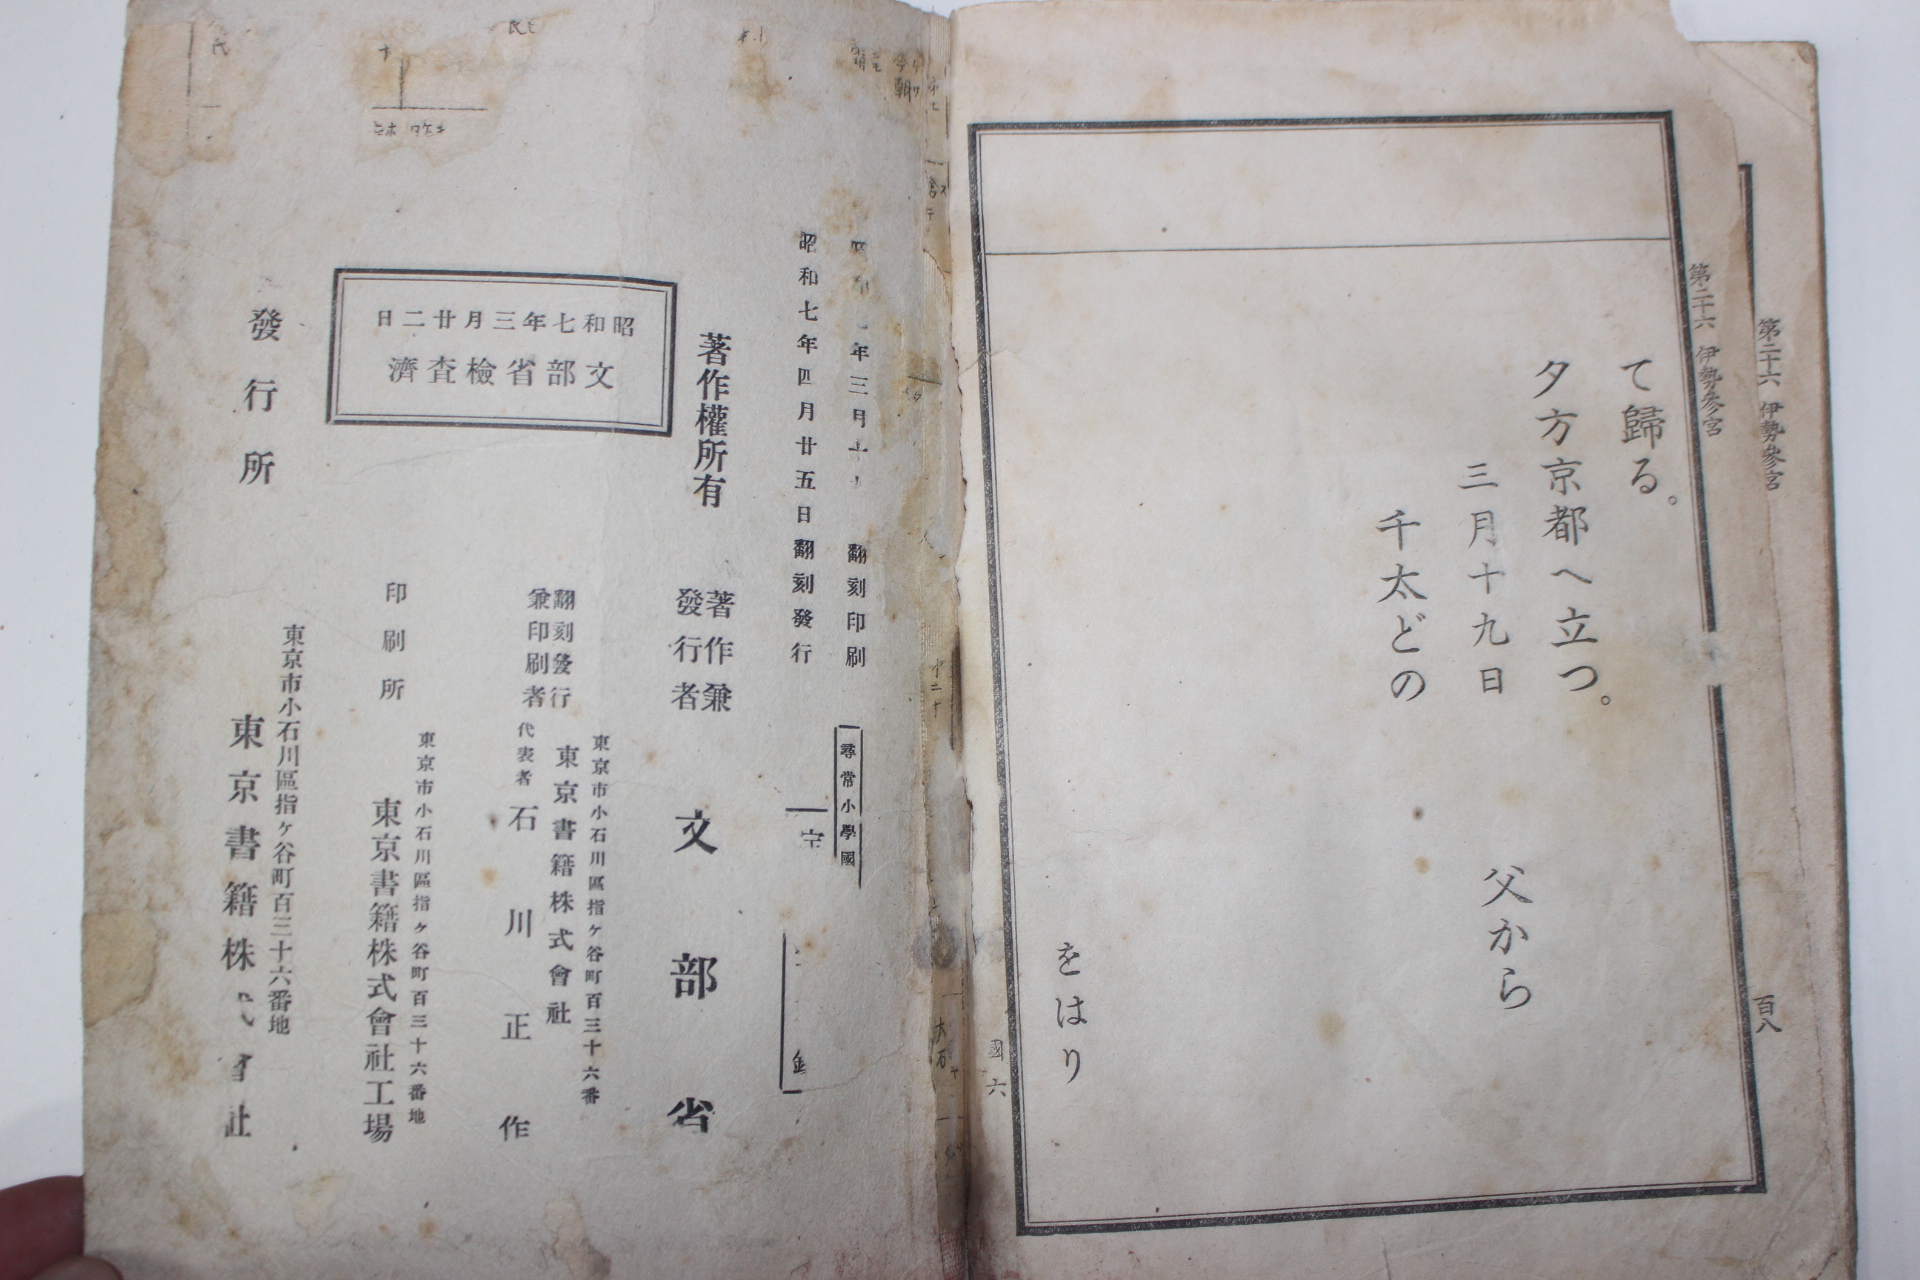 第二十六 伊勢參宮
百八
第二十六 伊勢參宮
て歸る。
夕方京都へ立つ。
三月十九日
父から
千太どの
をはり
國六
年三月
翻刻印刷
昭和七年四月廿五日翻刻發行
尋常小學國
著作權所有
著作兼
發行者
文部省
昭和七年三月廿二日
文部省檢査濟
翻刻發行
兼印刷者
東京市小石川區指ヶ谷町百三十六番
東京書籍株式會社
代表者
石川正作
印刷所
東京市小石川區指ヶ谷町百三十六番地
東京書籍株式會社工場
發行所
東京市小石川區指ヶ谷町百三十六番地
東京書籍株式會社